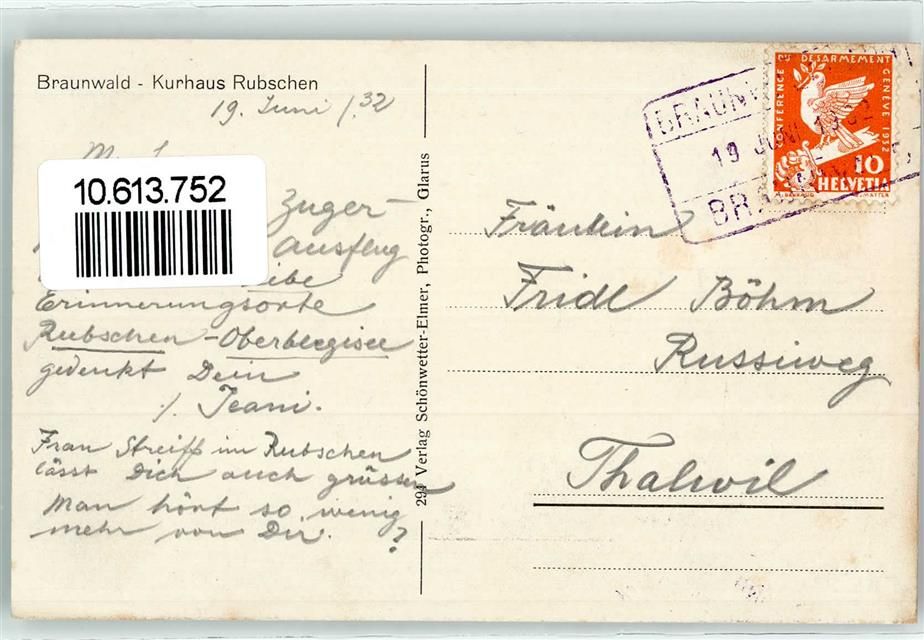 Braunwald - Kurhaus Rubschen
19. Juni 1932
10.613.752
Zuger-
ausflug
Erinnerungsorte
Rubschen - Oberblegisee
gedenkt Dein
Jeani.
Frau Streiff im Rubschen
lässt Dich auch grüssen
Man hört so wenig
mehr von Dir. ?
294 Verlag Schönwetter-Elmer, Photogr., Glarus
CONFERENCE DU DESARMEMENT GENEVE 1932
10
HELVETIA
19 JUNI 1932
Fräulein
Fridl Böhm
Russiweg
Thalwil